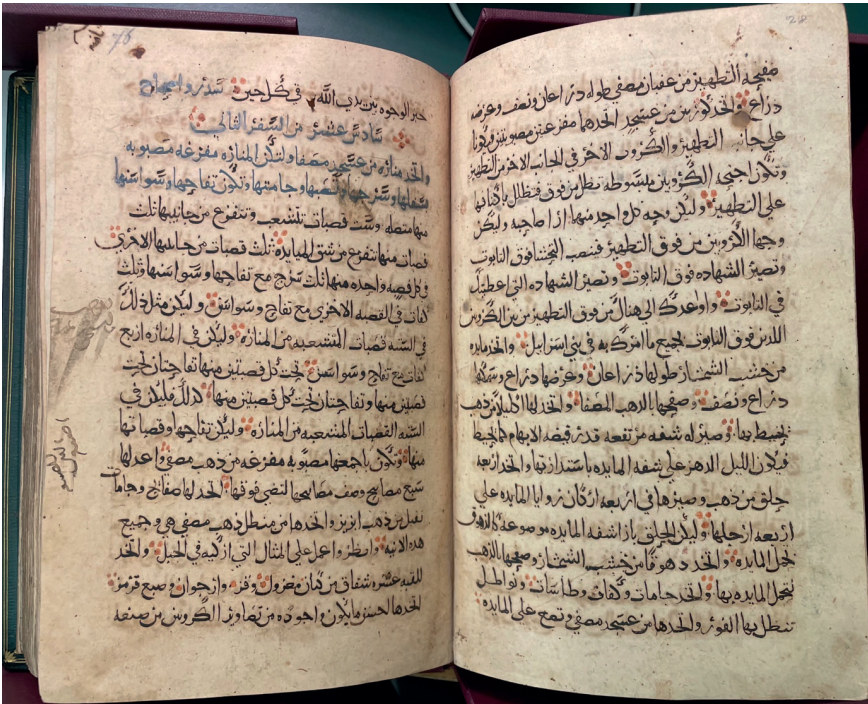 28
صفيحة التطهير من عقيان مصفي طوله ذراعان ونصف وعرضه
ذراع واتخد كروبين من عسجد اتخدهما مفرغين مصبوبين ويكونا
علي جانبي التطهير والكروب الاخر في الجانب الاخر من التطهير
وتكون اجنحة الكروبين مبسوطه تظل من فوق فتظلل باكنافها
علي التطهير وليكن وجه كل واحد منهما ازا صاحبه وليكن
وجها الكروبين من فوق التطهير فينصب فوق التابوت
وتصير الشهاده فوق التابوت وتصير الشهاده التي اعطيك
في التابوت واواعدك الي هناك من فوق التطهير من بين الكروبين
اللدين فوق التابوت لجميع ما امرك به في بني اسرايل واتخد مايده
من خشب الشمشار طولها ذراعان وعرضها ذراع وسمكها
ذراع ونصف وصفحها بالدهب المصفا واتخد لها اكليلا من ذهب
يحيط بها وصير له شفه مرتفعه قدر قبضه الابهام كما يحيط
فيكون اكليل الدهب علي شفه المايده باستدارتها واتخد اربعه
حلق من ذهب وصيرها في اربعه اركان زوايا المايده علي
اربعه ارجلها وليكن الحلق بازا شفه المايده موضوعه للدهوق
لحمل المايده واتخد دهوقا من خشب الشمشار وصفحها بالذهب
لتحمل المايده بها واتخد جامات وكاهات وطاسات ونواطل
تنطل بها الفوئر واتخدها من عسجد مصفي وتضع علي المايده
76
خبز الوجوه بين يدي الله في كل حين
سادس عشر من السفر الثاني
واتخد مناره من عسجد مصفا ولتكن المناره مفرغه مصبوبه
بسفلها وسرجها وقصبها وجامتها وتكون تفاحها وسواسنها
منها متصله وست قصبات تتشعب وتتفرع من جانبيها ثلث
قصبات منها تتفرع من شق المناره ثلث قصبات من جانبها الاخري
في كل قصبه واحده منها ثلث سرج مع تفاحها وسواسنها وثلث
كاهات في القصبه الاخري مع تفاح وسواسن وليكن مثل ذلك
في السته قصبات المتشعبه من المناره وليكن في المناره اربع
كفات مع تفاح وسواسن تحت كل قصبتين منها تفاحتان تحت
قصبتين منها وتفاحتان تحت كل قصبتين منها كدلك فليكن في
السته القصبات المتشعبه من المناره وليكن تفاحها وقصباتها
منها وتكون باجمعها مصبوبه مفرغه من دهب مصفي واعد لها
سبع مصابيح وصف مصابيحها لتضي فوقها اتخد لها صفائح وجامات
تعمل من ذهب ابريز واتخدها من منطل دهب مصفي هي وجميع
هده الانيه وانظر واعمل علي المثال التي اريك في الجبل واتخد
للقبه عشره شقاق من كتان مغزول وقز وارجوان وصبع قرمز
اتخدها احسن ما يكون واجوده من تصاوير الكروبين من صنعه